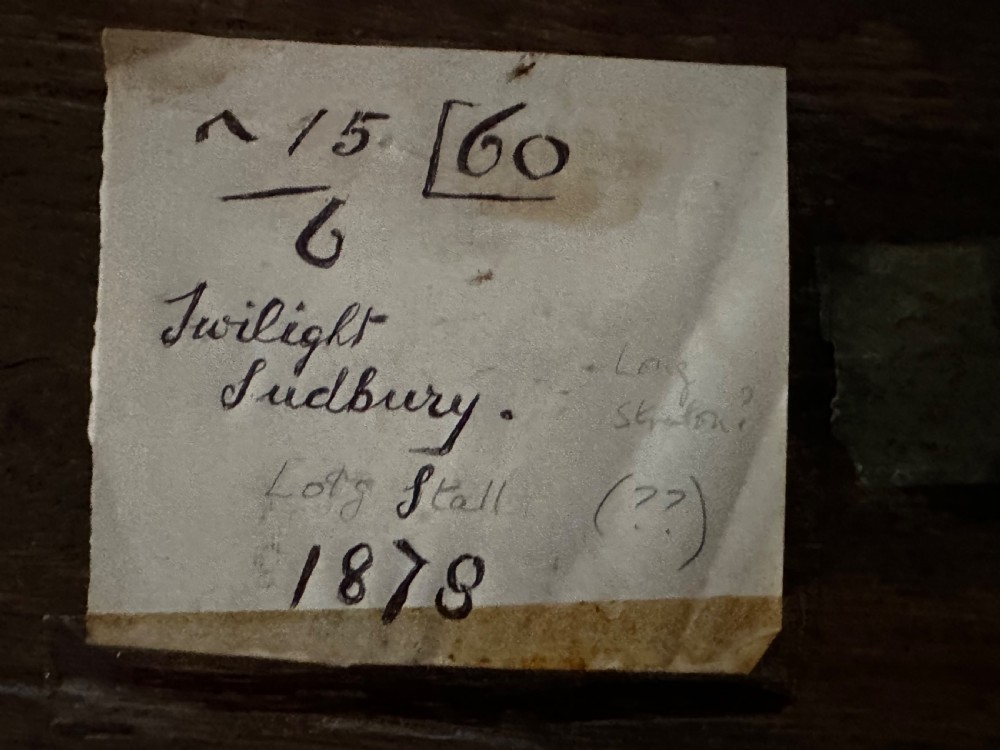 ^ 15 60
6
Twilight
Sudbury.
Long
Stratton?
Long Stall
(??)
1878